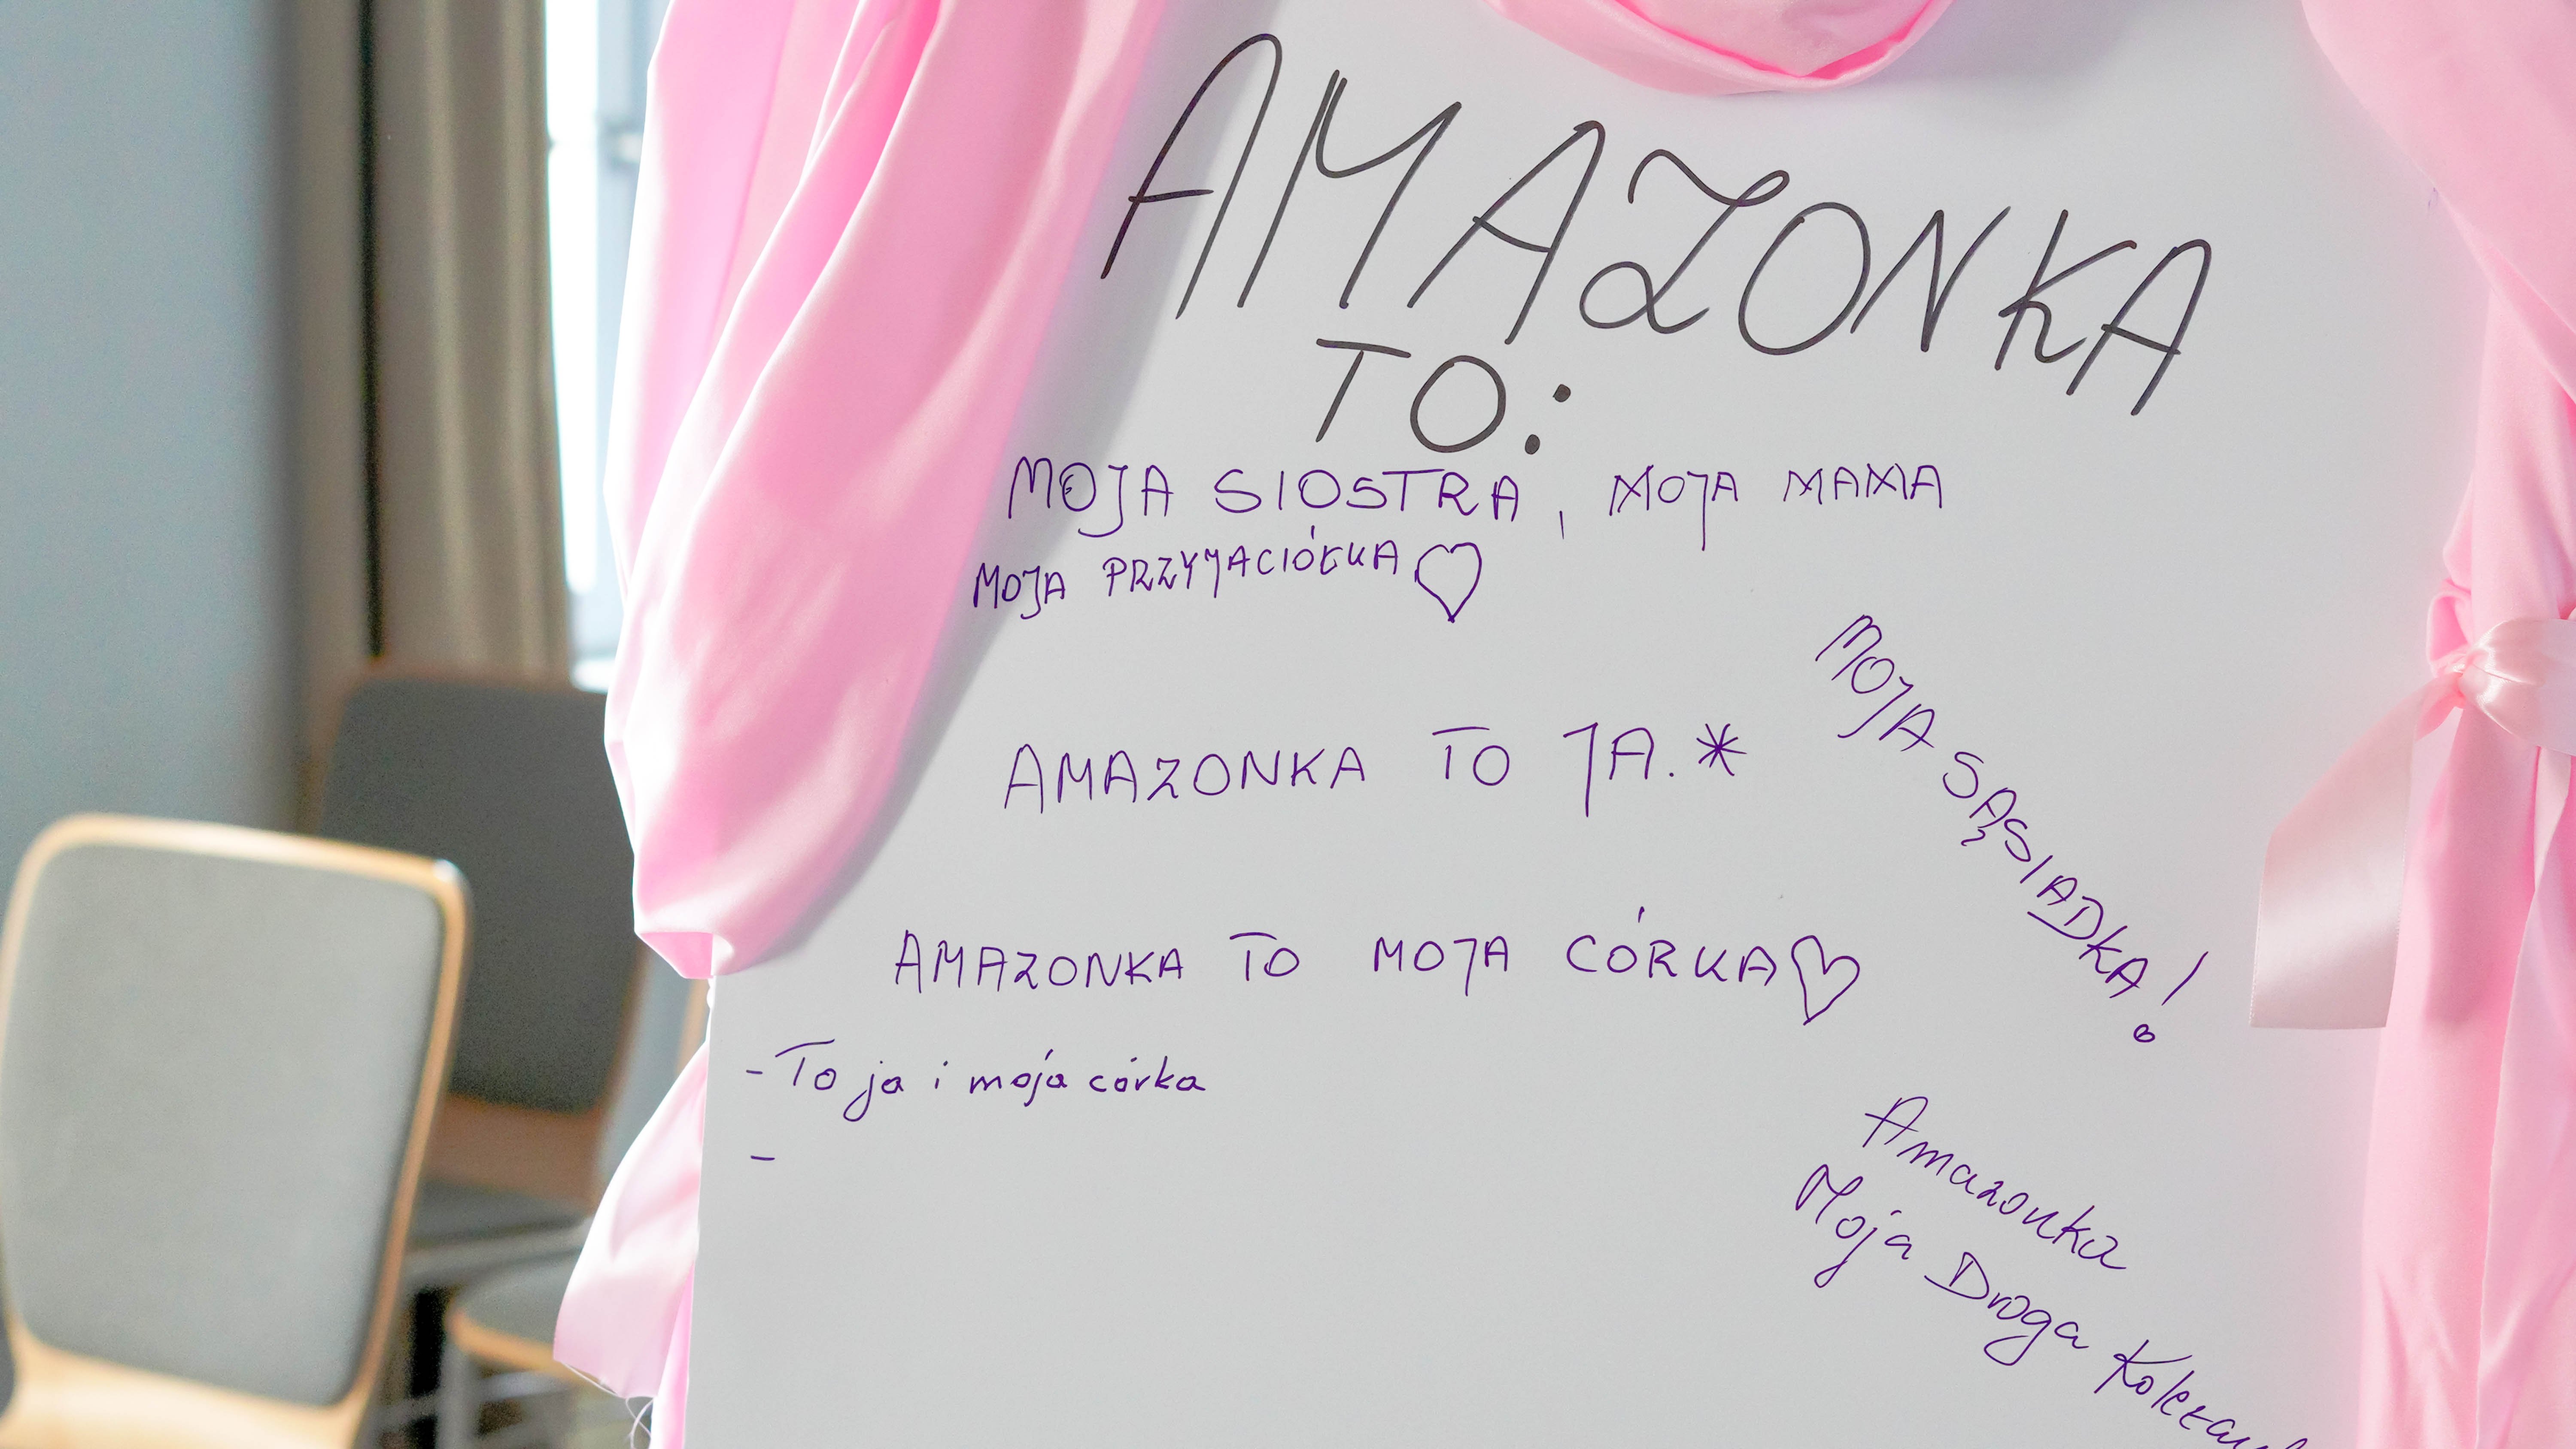 AMAZONKA
TO:
MOJA SIOSTRA, MOJA MAMA
MOJA PRZYJACIÓŁKA
MOJA SĄSIADKA!
AMAZONKA TO JA.*
AMAZONKA TO MOJA CÓRKA
- To ja i moja córka
-
Amazonka
Moja Droga